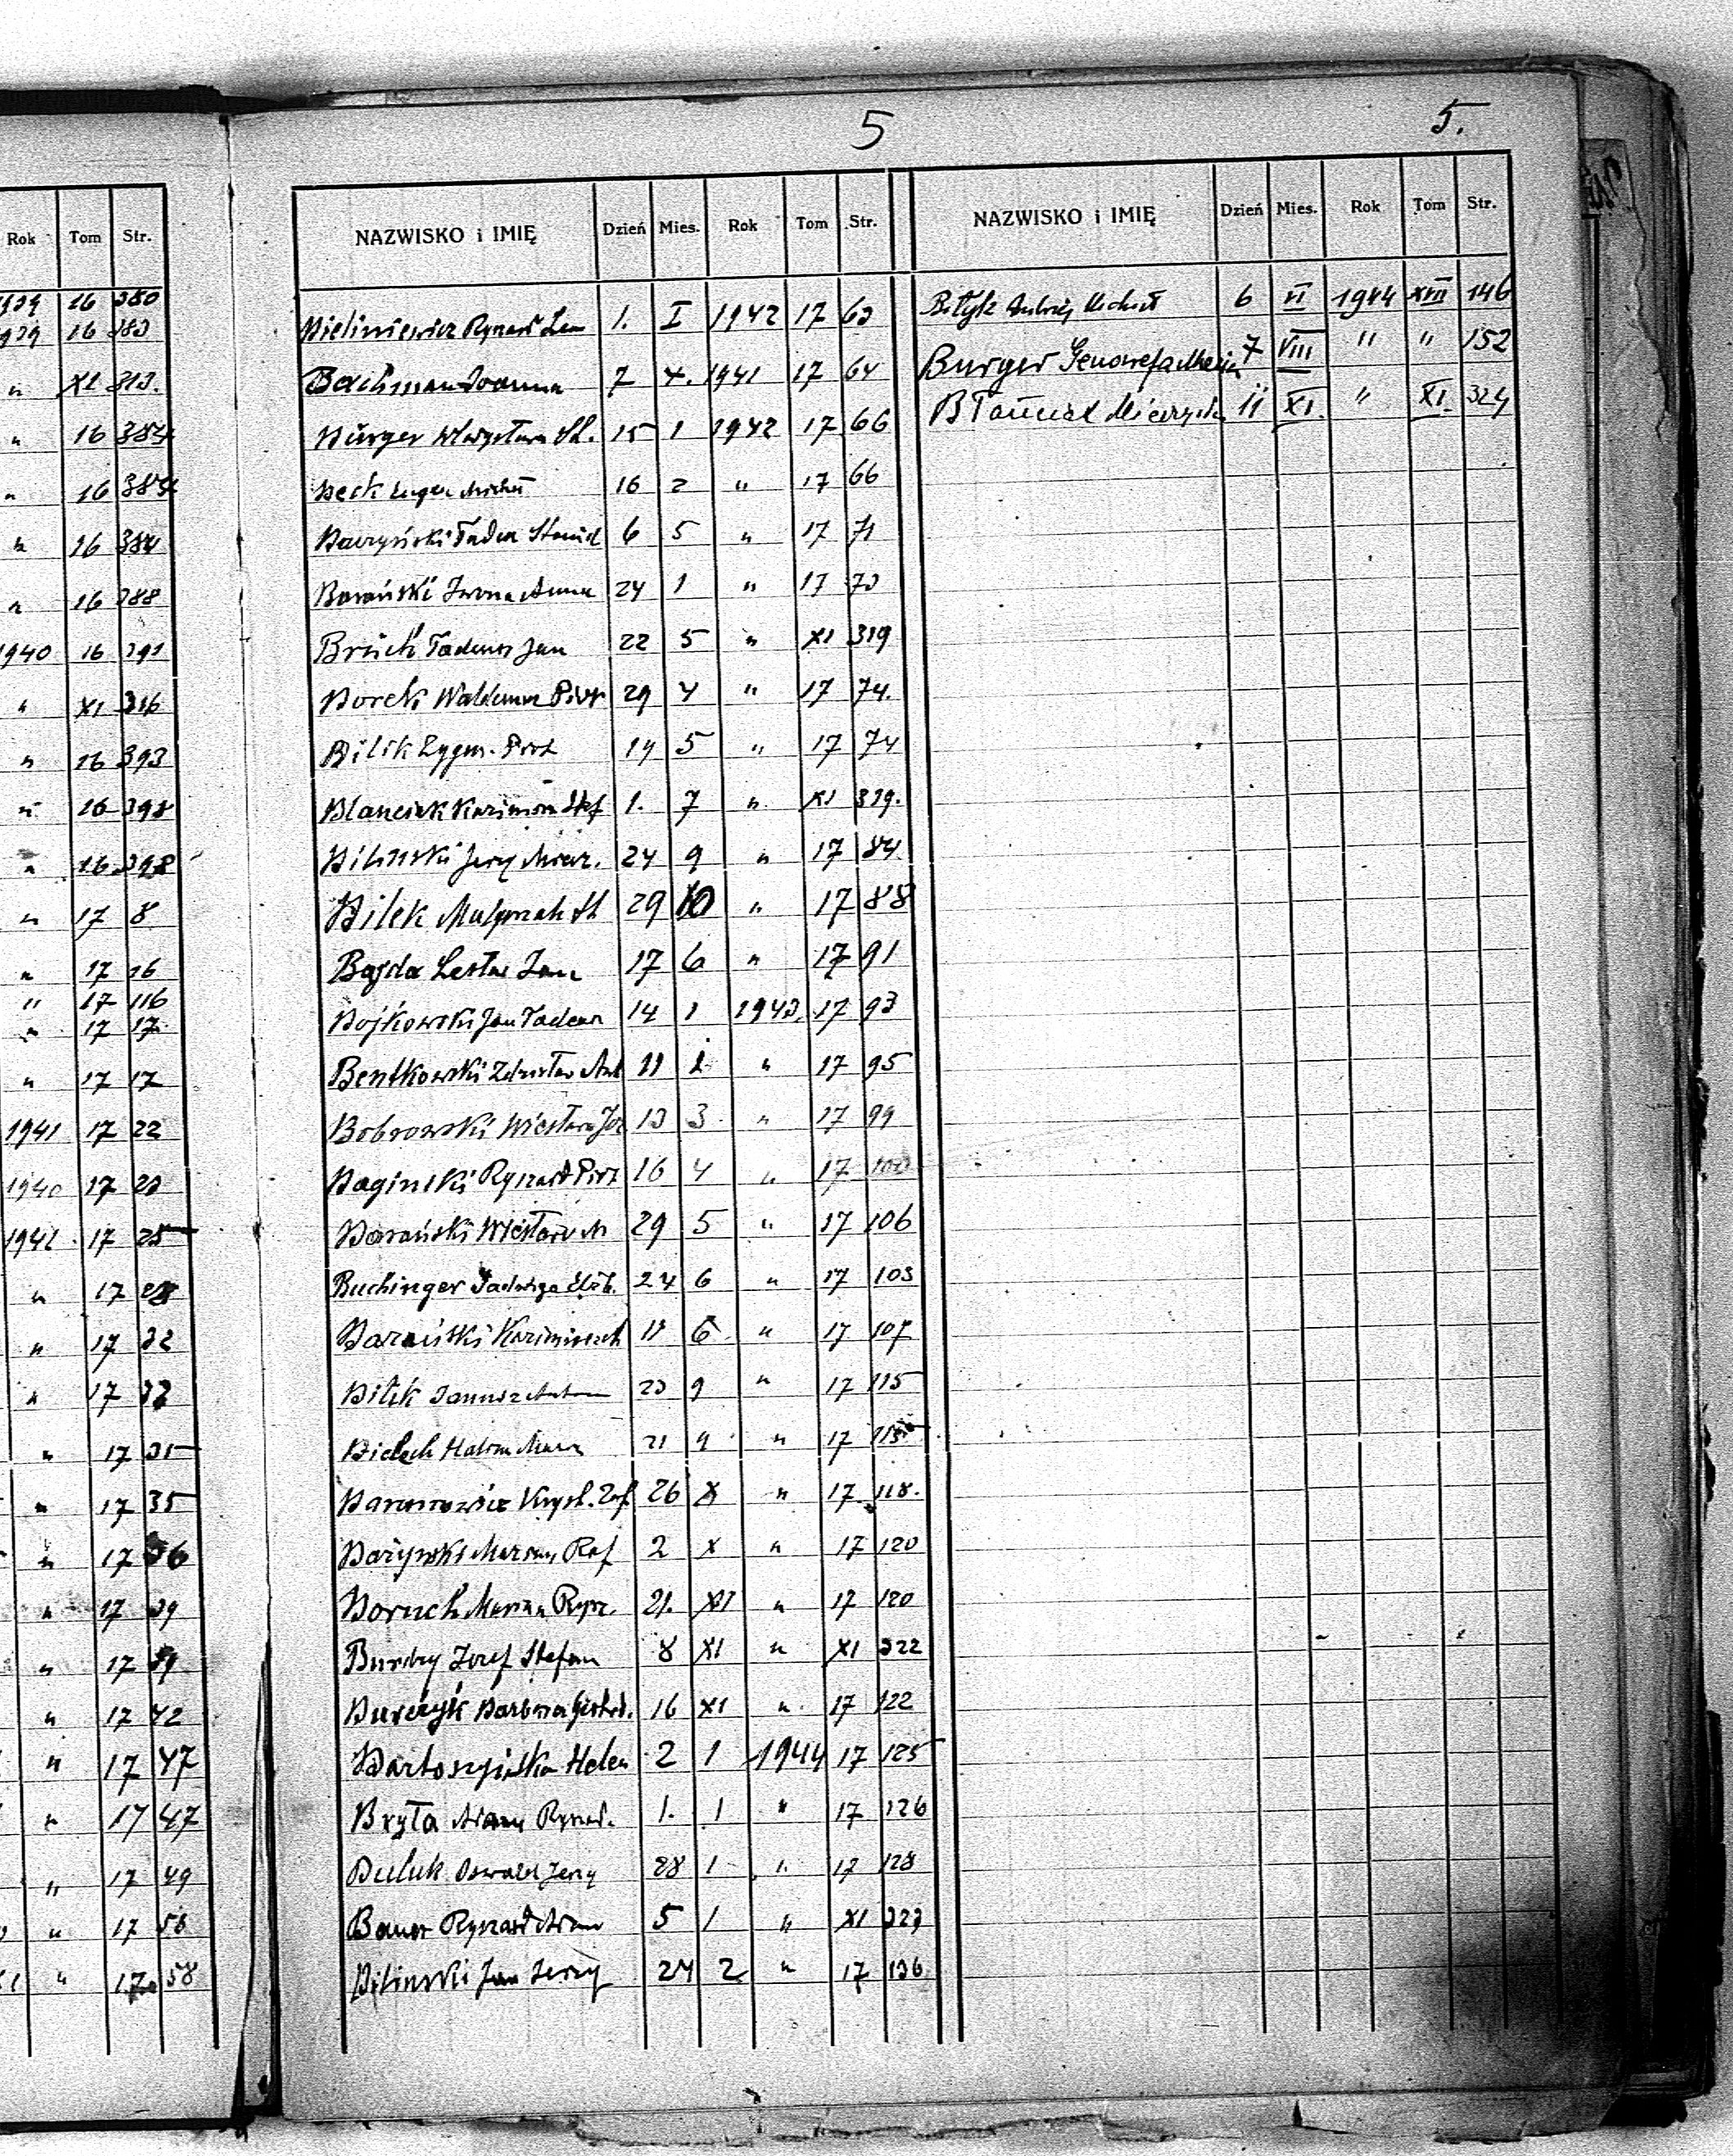 5 5.
Rok Tom Str.
1939 16 380
1939 16 383
" XI 313.
" 16 384
" 16 384
" 16 384
" 16 388
1940 16 391
" XI 316
" 16 393
" 16 398
" 16 398
" 17 8
" 17 16
" 17 116
" 17 17
" 17 17
1941 17 22
1940 17 23
1941 17 25
" 17 28
" 17 32
" 17 33
" 17 35
" 17 35
" 17 36
" 17 39
" 17 39
" 17 42
" 17 47
" 17 47
" 17 49
" 17 56
" 17 58
NAZWISKO i IMIĘ Dzień Mies. Rok Tom Str.
Bieliniewicz Ryszard 1. I 1942 17 63
Bachman Joanna 7 X. 1941 17 64
Burger 15 1 1942 17 66
Beck Eugen 16 2 " 17 66
Baczyński Tadeu 6 5 " 17 71
Barański Iwona Anna 24 1 " 17 73
Bruch Tadeusz Jan 22 5 " XI 319
Borek Waldemar Piotr 29 4 " 17 74.
Bilik Zygm. Piotr 14 5 " 17 74
Blanciak Kazimierz Stef 1. 7 " XI 319.
Biliński Jerzy 24 9 " 17 84
Bilek Małgorzata 29 10 " 17 88
Bajda Lesław Jan 17 6 " 17 91
Bojkowski Jan Tadeusz 14 1 1943 17 93
Bentkowski Zdzisław Ant 11 1 " 17 95
Bobrowski Wiesław Józ 13 3 " 17 99
Bagiński Ryszard Piotr 16 4 " 17 100
Barański Wiesław M 29 5 " 17 106
Buchinger Jadwiga Elżb. 24 6 " 17 103
Barański Kazimierz 13 6 " 17 107
Bilik Janusz Antoni 23 9 " 17 115
Bielech Halina Maria 21 9 " 17 115
Baranowicz Kryst. Zof 26 X " 17 118.
Bażyński Marian Raf 2 X " 17 120
Boruch Marian Rysz. 21. XI " 17 120
Burdzy Józef Stefan 8 XI " XI 322
Burczyk Barbara 16 XI " 17 122
Bartoszyńska Helen 2 1 1944 17 125
Bryła Adam Ryszard. 1. 1 " 17 126
Buluk Oswald Jerzy 28 1 " 17 128
Bauer Ryszard Adam 5 1 " XI 323
Biliński Jan Jerzy 24 2 " 17 136
NAZWISKO i IMIĘ Dzień Mies. Rok Tom Str.
Andrzej Michał 6 VI 1944 XVII 146
Burger Genowefa Maria 7 VIII " " 152
Błauciak Mieczysław 11 XI. " XI. 324